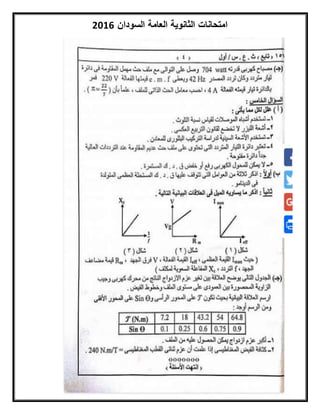 امتحانات الثانوية العامة السودان 2016
[١٥] تابع / ث . ع . س / أول ( ٤ )
(جـ) مصباح كهربى قدرته 704 watt وصل على التوالى مع ملف حث مهمل المقاومة فى دائرة
تيار متردد وكان تردد المصدر 42 Hz ويعطى e . m . f قيمتها الفعالة 220 V فمر
بالدائرة تيار قيمته الفعالة 4 A احسب معامل الحث الذاتى للملف ، علماً بأن ( π = 22/7 ) .
السؤال الخامس :
( أ ) علل لكل مما يأتى :
١ـ تستخدم أشباه الموصلات لقياس نسبة التلوث .
٢ـ أشعة الليزر لا تخضع لقانون التربيع العكسى .
٣ـ تستخدم الأشعة السينية لدراسة التركيب البلورى للمعادن .
٤ـ تعتبر دائرة التيار المتردد التى تحتوى على ملف حث عديم المقاومة عند الترددات العالية
جداً دائرة مفتوحة .
٥ـ لا يمكن للمحول الكهربى رفع أو خفض ق . د . ك المستمرة .
(ب) أولاً : اذكر ثلاثة من العوامل التى تتوقف عليها ق . د . ك المستحثة العظمى المتولدة
فى الدينامو .
ثانياً : اذكر ما يساويه الميل فى العلاقات البيانية التالية .
X_L Vg I_max
f R_m I_eff
شكل (٣) شكل (٢) شكل (١)
( حيث I_max القيمة العظمى ، I_eff القيمة الفعالة ، V فرق الجهد ، R_m قيمة مضاعف
الجهد ، f التردد ،
(جـ) الجدول التالى يوضح العلاقة بين تغير عزم الازدواج الناتج من محرك كهربى وجيب
الزاوية المحصورة بين العمودى على مستوى الملف وخطوط الفيض .
ارسم العلاقة البيانية بحيث تكون τ على المحور الرأسى و Sin Θ على المحور الأفقى
ومن الرسم أوجد :
τ (N.m) 7.2 18 43.2 54 64.8
Sin Θ 0.1 0.25 0.6 0.75 0.9
١ـ أكبر عزم ازدواج يمكن الحصول عليه من الملف .
٢ـ كثافة الفيض المغناطيسى إذا علمت أن عزم ثنائى القطب المغناطيسى = 240 N.m/T .
( انتهت الأسئلة )